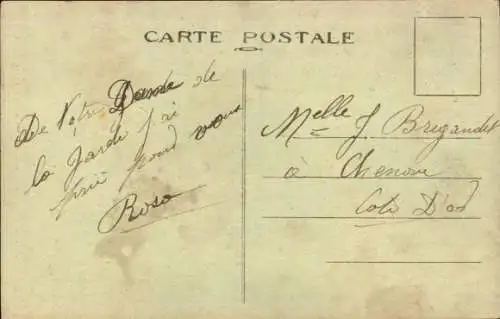 CARTE POSTALE
De Notre Dame de
la Garde j'ai
prié pour vous
Rosa
Melle J. Brigandet
à Chenove
Cote D'or